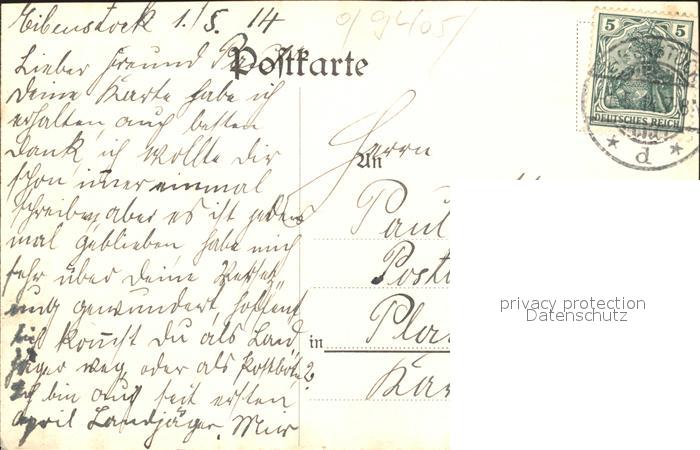 Eibenstock 1./5. 14
Lieber Freund
Postkarte
Deine Karte habe ich
erhalten, auch besten
Dank, ich wollte Dir
schon immer einmal
schreiben, aber es ist jedes
mal geblieben, habe mich
sehr über Deine Verset
ung gewundert, hoffent
lich kommst Du als Land
jäger weg, oder als Postbote?
Ich bin auch seit ersten
April Landjäger. Mir
5 5
DEUTSCHES REICH
d
An
Herrn
Paul
in
privacy protection
Datenschutz